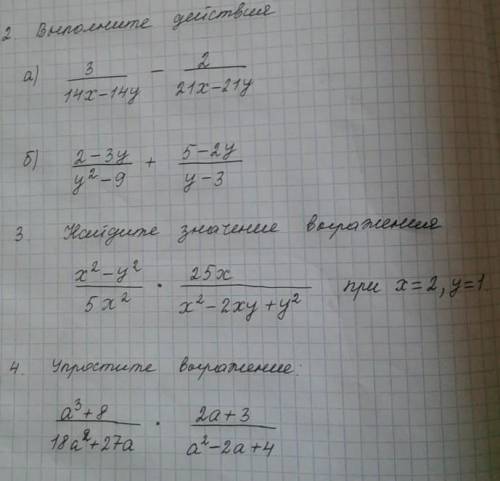 2. Выполните действия
а) 3/(14x-14y) - 2/(21x-21y)
б) (2-3y)/(y²-9) + (5-2y)/(y-3)
3. Найдите значение выражения
(x²-y²)/(5x²) · 25x/(x²-2xy+y²) при x=2, y=1.
4. Упростите выражение:
(a³+8)/(18a²+27a) · (2a+3)/(a²-2a+4)